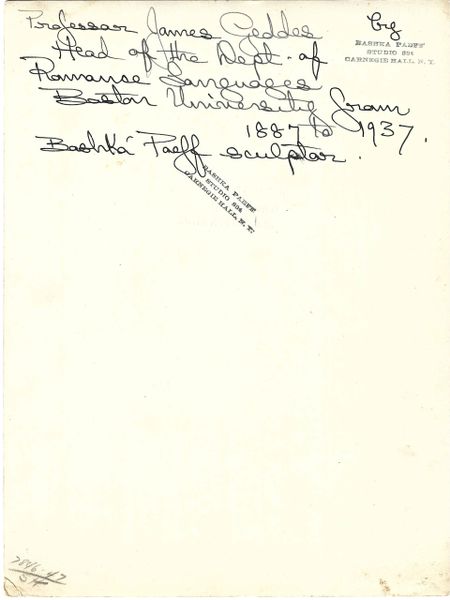 Professor James Geddes
Head of the Dept. of
Romanse Languages
Boston University from
1887 to 1937.
Bashká Paeff sculptor.
by
BASHKA PAEFF
STUDIO 896
CARNEGIE HALL, N. Y.
BASHKA PAEFF
STUDIO 896
CARNEGIE HALL, N. Y.